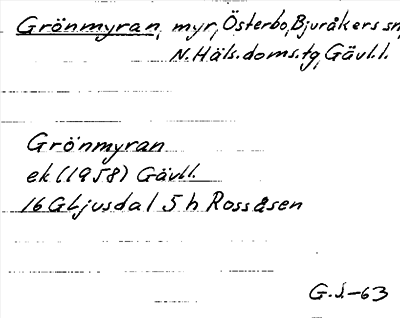 Grönmyran, myr, Österbo, Bjuråkers sn,
N. Häls. doms. tg, Gävl.l.
Grönmyran
ek (1958) Gävl.l.
16G Ljusdal 5 h Rossåsen
G.J.-63